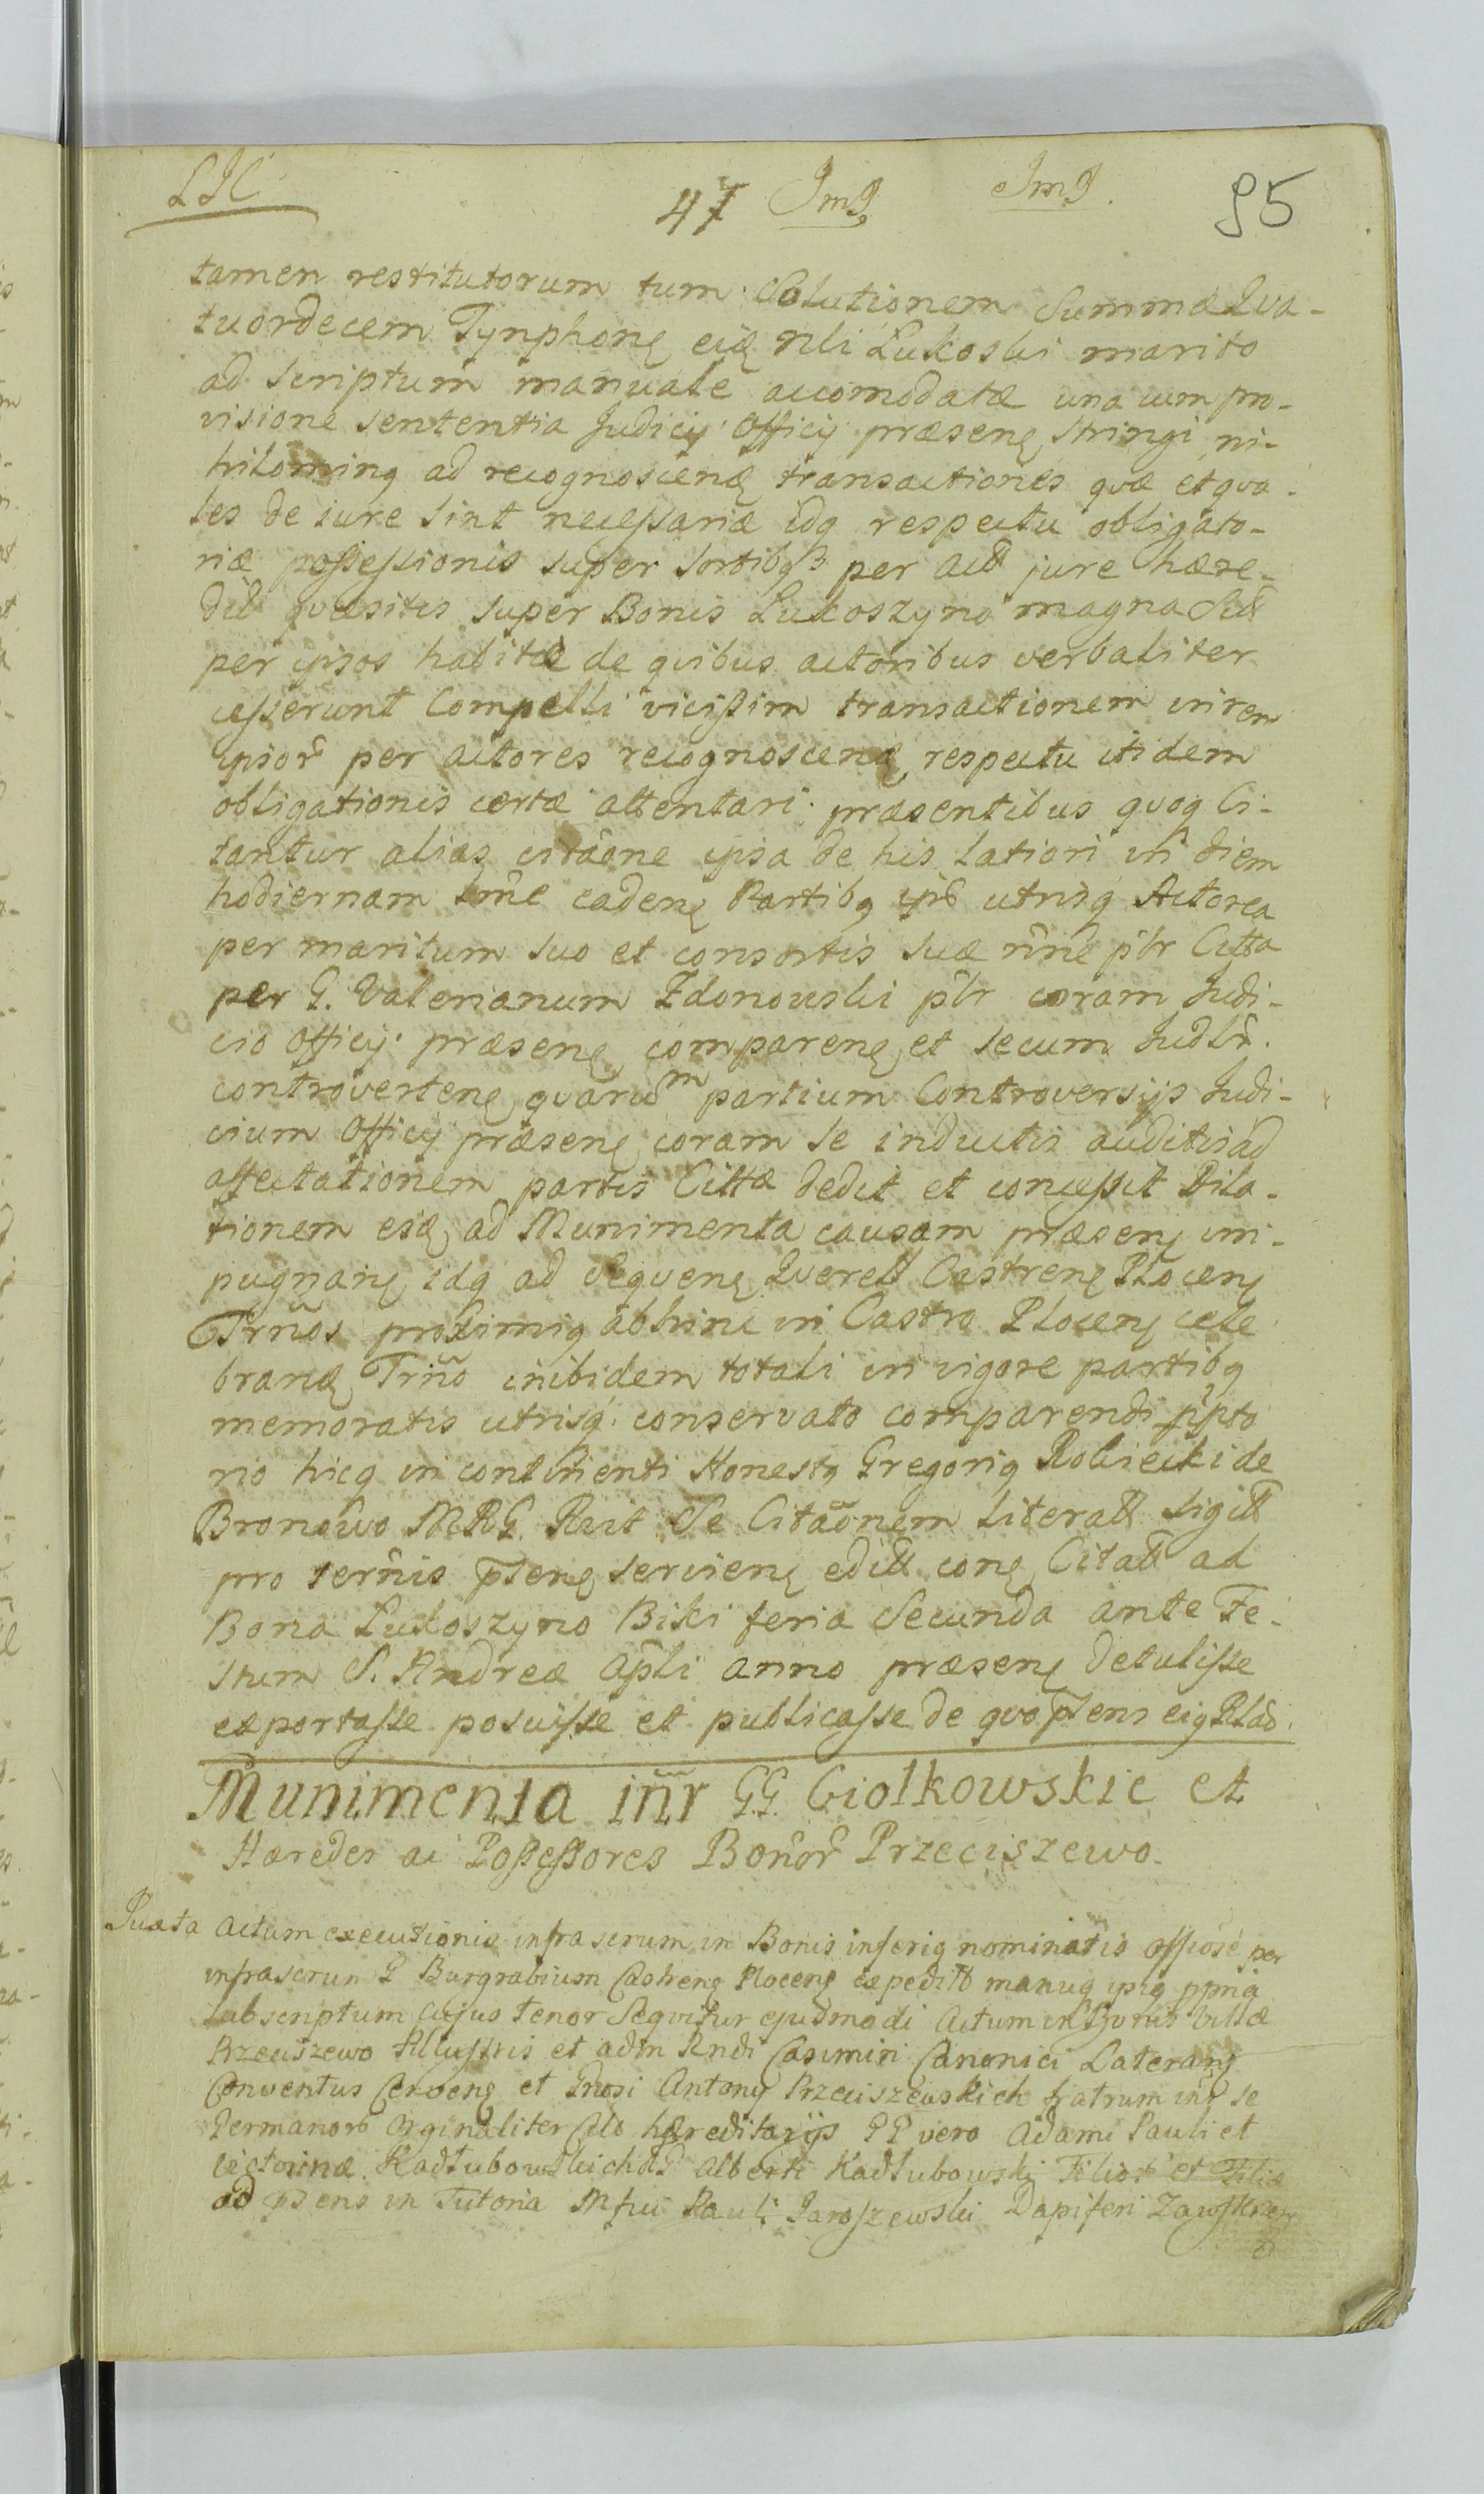 LJC 47 Jmg Jmg. 95
tamen restitutorum tum Solutionem Summæ Qva-
tuordecem Tynphonę eię Nli Lukoski marito
ad scriptum manuale accomodatæ una cum pro-
visione sententia Judicij Officij præsenę stringi, ni-
hilominq ad recognoscenę transactiones qvæ et qva-
les de iure sint necessariæ idq respectu obligato-
riæ possessionis super sortibq per act jure hære-
dit qvæsitis super Bonis Lukoszyno magna Sitt
per ipsos habitæ de qvibus actoribus verbaliter
cesserunt Compelli vicissim transactionem in rem
ipsor per actores recognoscenę, respectu itidem
obligationis certæ attentari præsentibus qvoq Ci-
tantur alias citãone ipsa de his latiori in diem
hodiernam lrne cadenę Partibq ipis utrisq Actorea
per maritum suo et consortis suæ nîne pbr Citta
per G. Valerianum Zdonowski pbr coram Judi-
cio Officij præsenę comparenę et secum Judlr.
controvertenę qvarum partium Controversijs Judi-
cium Officij præsenę coram se inductis auditis ad
affectationem partis Cittæ dedit et concessit Dila-
tionem esię ad Munimenta causam præsenę im-
pugnanę idq ad Seqvenę Qverell Castrenę Plocenę
Trños proximiq abhinc in Castro Plocenę cele
branę Trñio inibidem totali in vigore partibq
memoratis utrisq conservato comparendi ppto
rio hicq in continenti Honestq Gregoriq Robiecki de
Bronowo MRG Rcit Se Citãonem Literatt Sigitt
pro termis psenę servienę editt conę Citatt ad
Bona Lukoszyno Biki feria Secunda ante Fe-
stum S. Andreæ Apli anno præsenę detulisse
exportasse posuisse et publicasse de qvo psens eiq Rlão.
Munimenta inr GG Ciołkowskie et
Hæredes ac Possessores Bonor Przeciszewo.
Juxta Actum executionis infrascrum in Bonis inferiq nominatis officiose per
infrascrum G Burgrabium Castrenę Plocenę expeditt manuq ipiq ppria
subscriptum cujus tenor seqvitur ejusmodi Actum in Bonis villæ
Przeciszewo Illustris et adm Rndi Casimiri Canonici Lateranę
Conventus Cervenę et Gnosi Antonij Przeciszewskich fratrum inę se
Germanor orginaliter Celo hæreditarijs GG vero Adami Pauli et
Victorinæ Kadłubowskich G Alberti Kadłubowski Filior et Filiæ
ad psens in Tutoria Mfici Pauli Jaroszewski Dapiferi Zawskrzenę